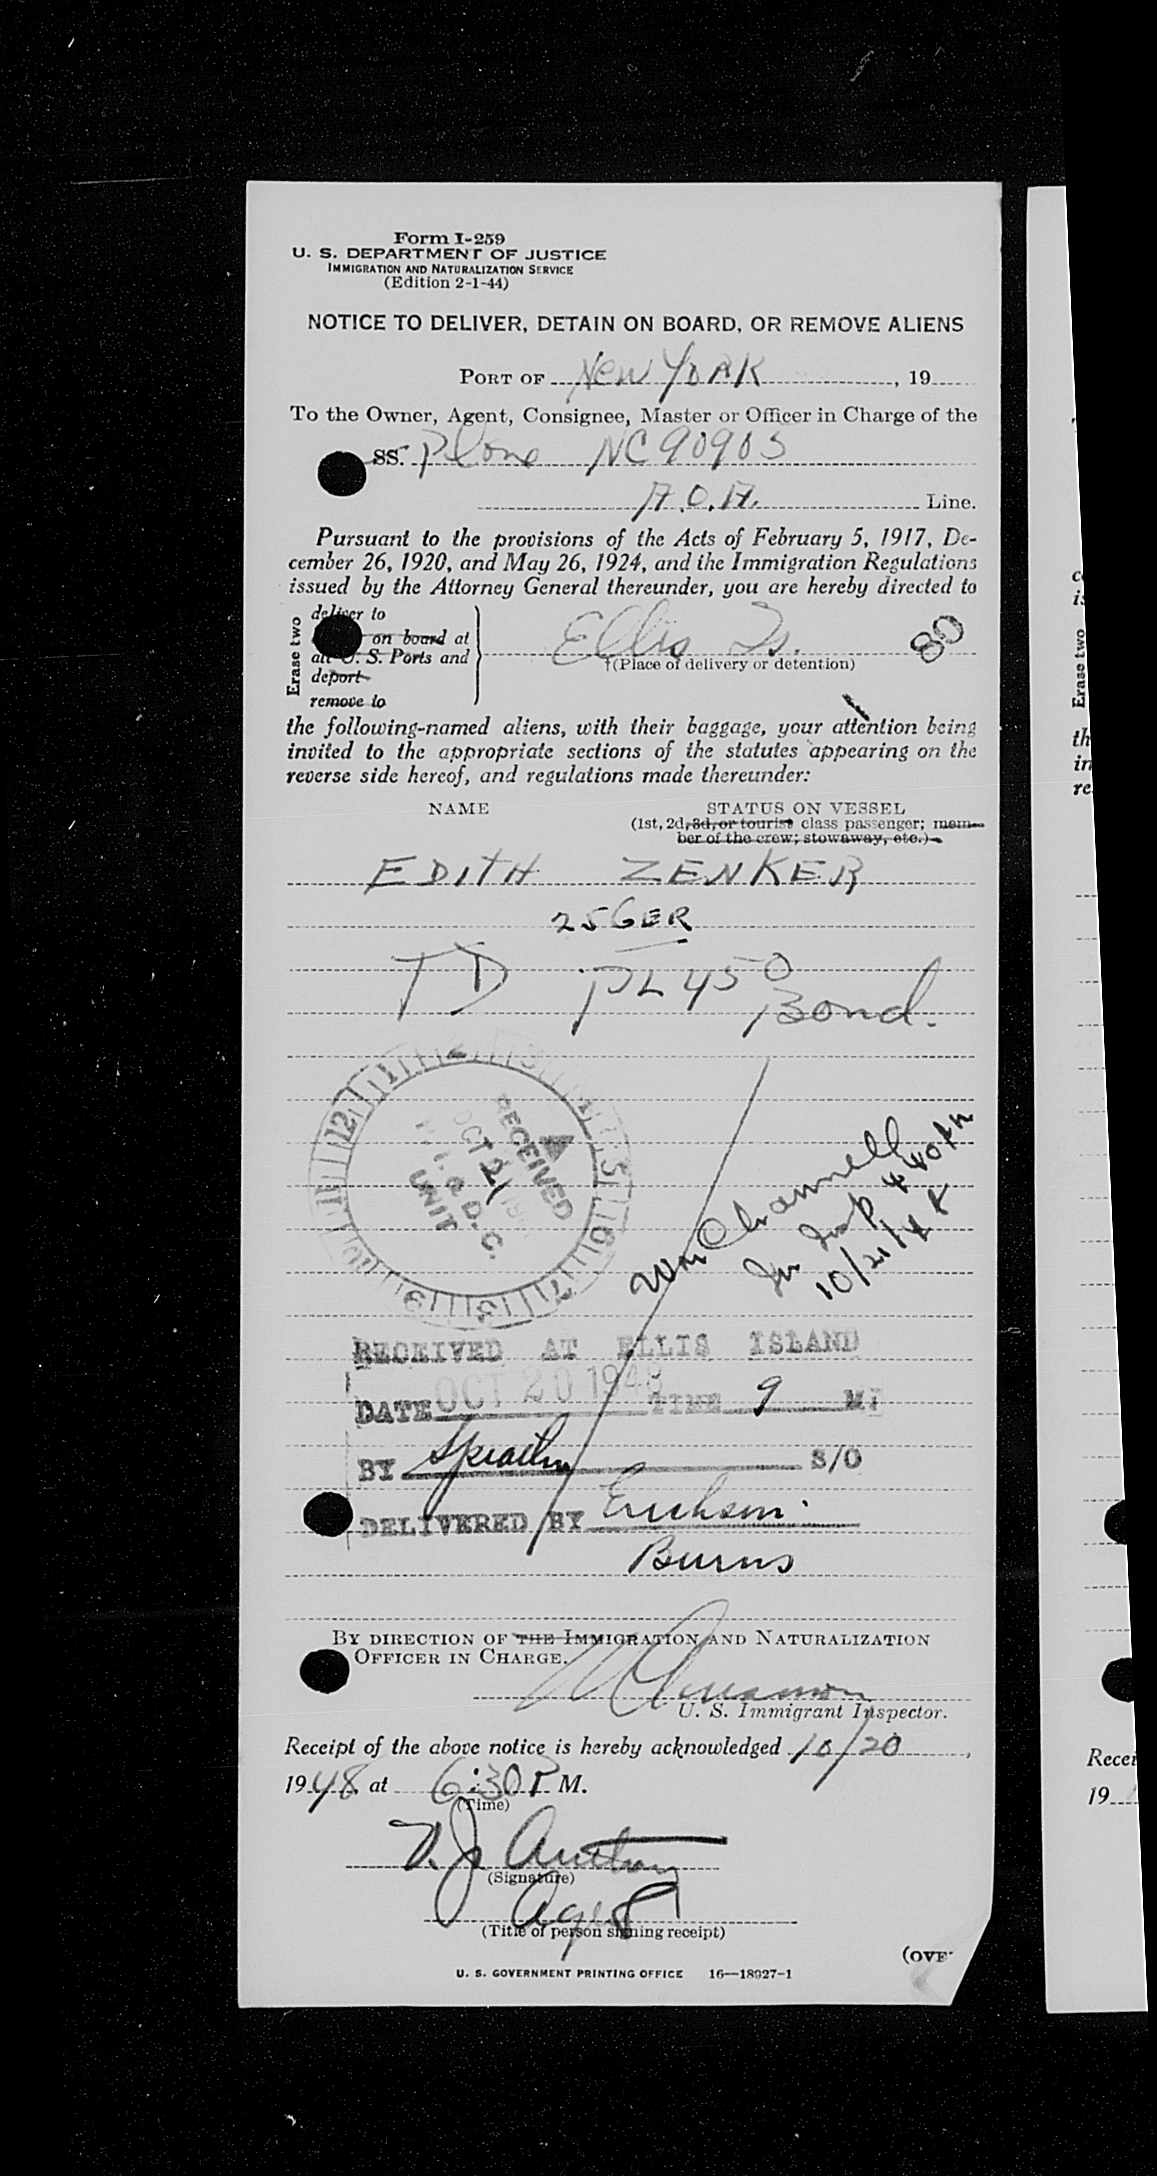 Form I-259
U. S. DEPARTMENT OF JUSTICE
IMMIGRATION AND NATURALIZATION SERVICE
(Edition 2-1-44)
NOTICE TO DELIVER, DETAIN ON BOARD, OR REMOVE ALIENS
PORT OF New YORK , 19
To the Owner, Agent, Consignee, Master or Officer in Charge of the
SS. Plane NC90905
A.O.A. Line.
Pursuant to the provisions of the Acts of February 5, 1917, De-
cember 26, 1920, and May 26, 1924, and the Immigration Regulations
issued by the Attorney General thereunder, you are hereby directed to
Erase two
deliver to
on board at
all U. S. Ports and
deport
remove to
Ellis Is. 80
†(Place of delivery or detention)
the following-named aliens, with their baggage, your attention being
invited to the appropriate sections of the statutes appearing on the
reverse side hereof, and regulations made thereunder:
NAME STATUS ON VESSEL
(1st, 2d, 3d, or tourist class passenger; mem-
ber of the crew; stowaway, etc.)
EDITH ZENKER
25 GER
TD PL 450
Bond.
12 1 2 3 4 5 6 7 8 9 10 11
RECEIVED
OCT 21
I. & D. C.
UNIT
Wm Channell
Im Insp 4 40 PM
10/21/48
RECEIVED AT ELLIS ISLAND
DATE OCT 20 1948 TIME 9 M
BY S/O
DELIVERED BY Erickson
Burns
BY DIRECTION OF THE IMMIGRATION AND NATURALIZATION
OFFICER IN CHARGE.
U. S. Immigrant Inspector.
Receipt of the above notice is hereby acknowledged 10/20 ,
1948 at 6:30 P M.
(Time)
(Signature)
Agent
(Title of person signing receipt)
(OVE
U. S. GOVERNMENT PRINTING OFFICE 16—18927-1
Erase two
th
in
re
Recei
19